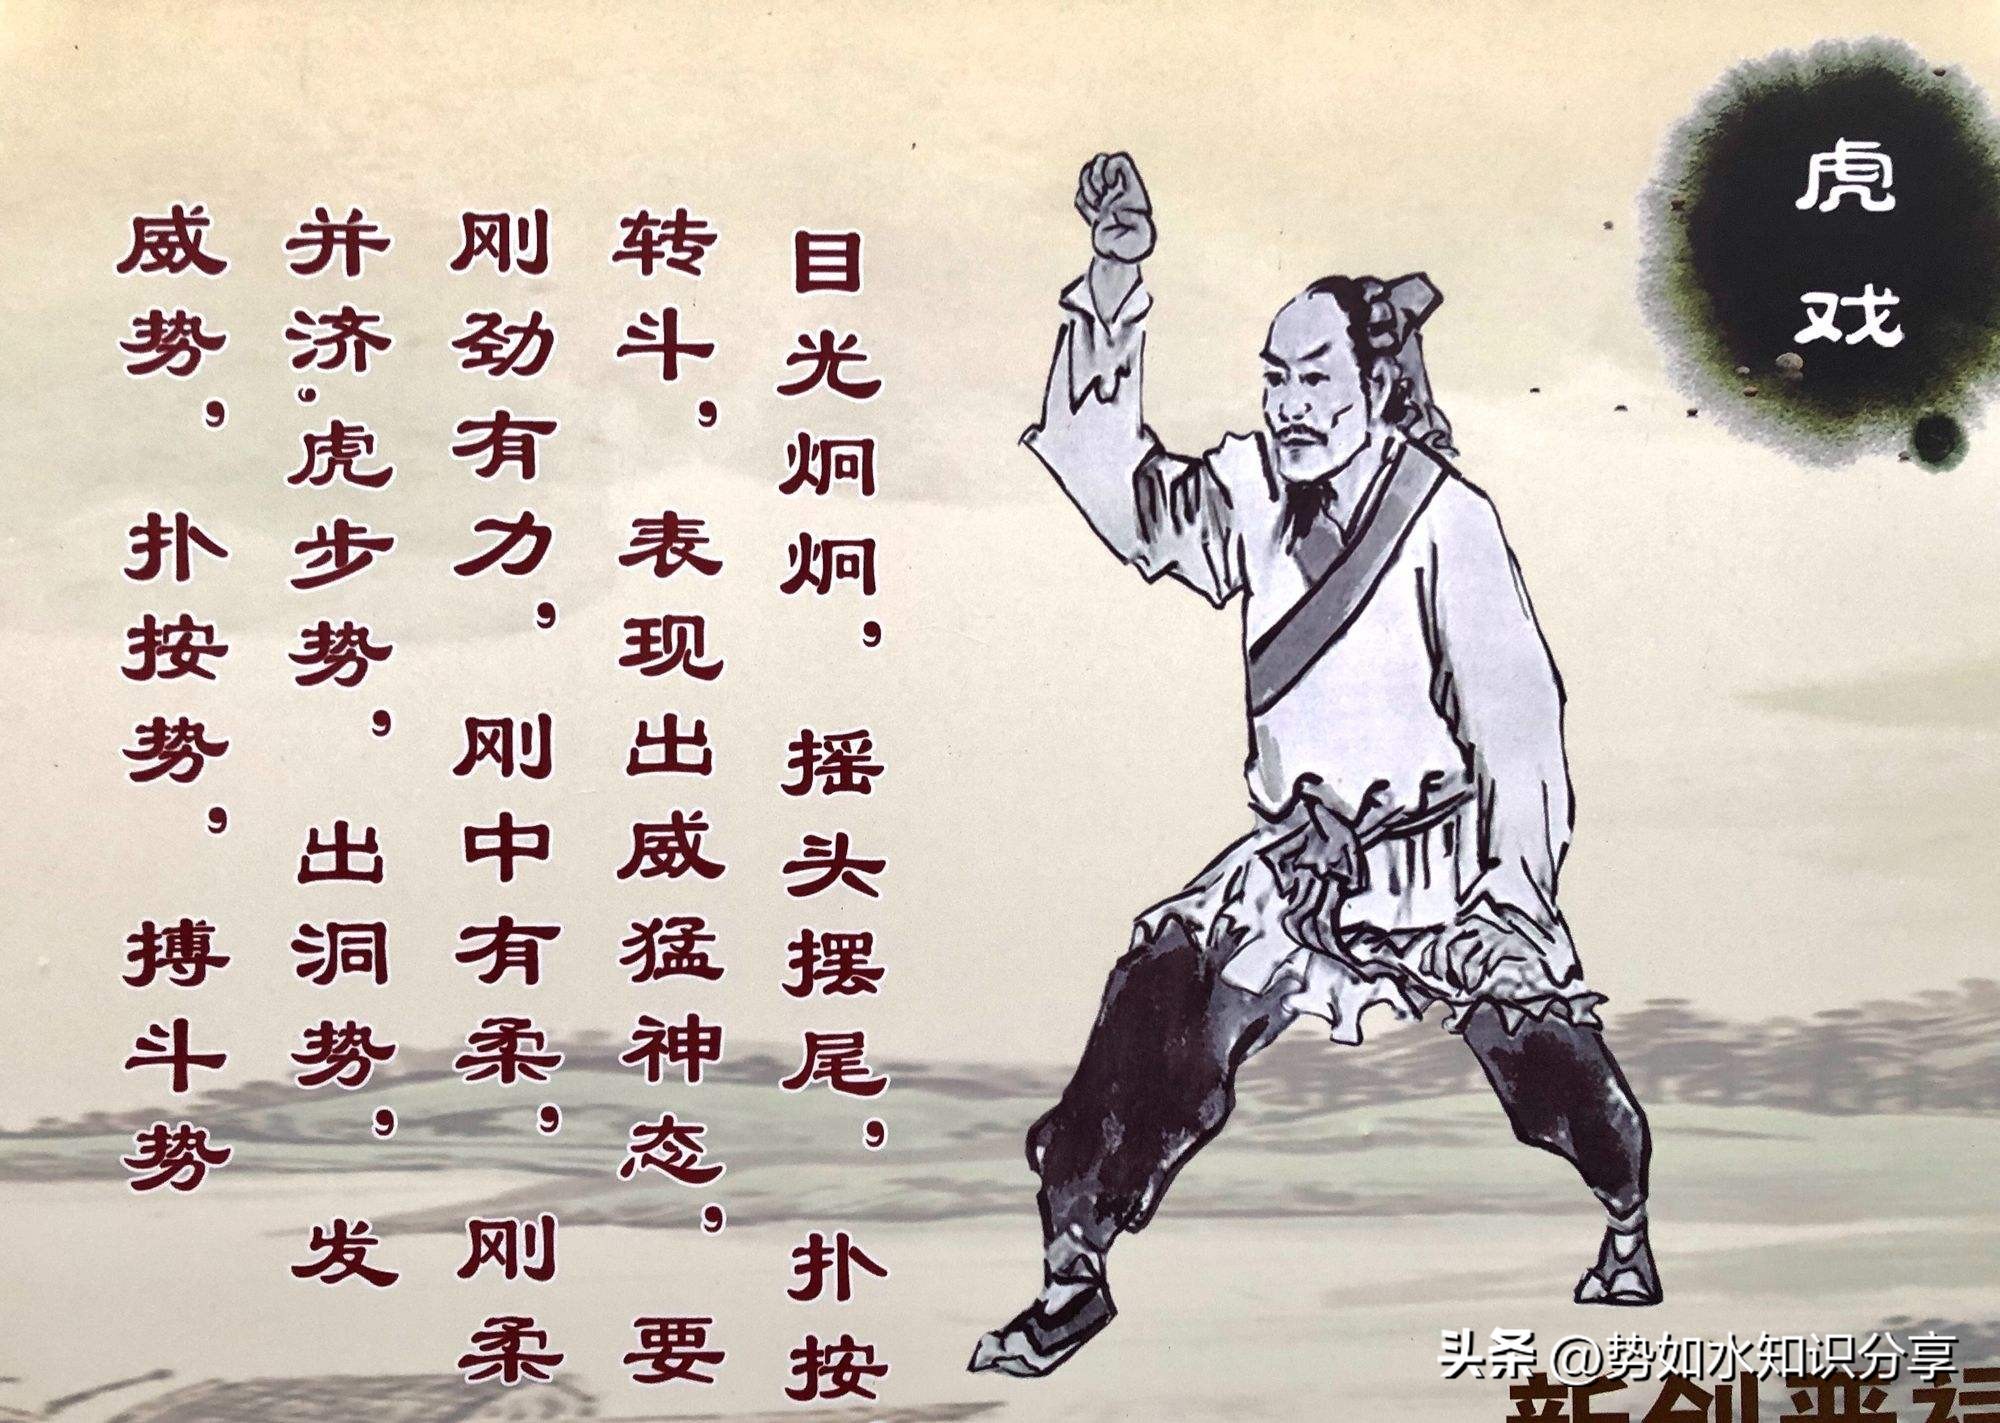 虎戏
目光炯炯，摇头摆尾，扑按
转斗，表现出威猛神态，要
刚劲有力，刚中有柔，刚柔
并济。虎步势，出洞势，发
威势，扑按势，搏斗势
头条 @势如水知识分享